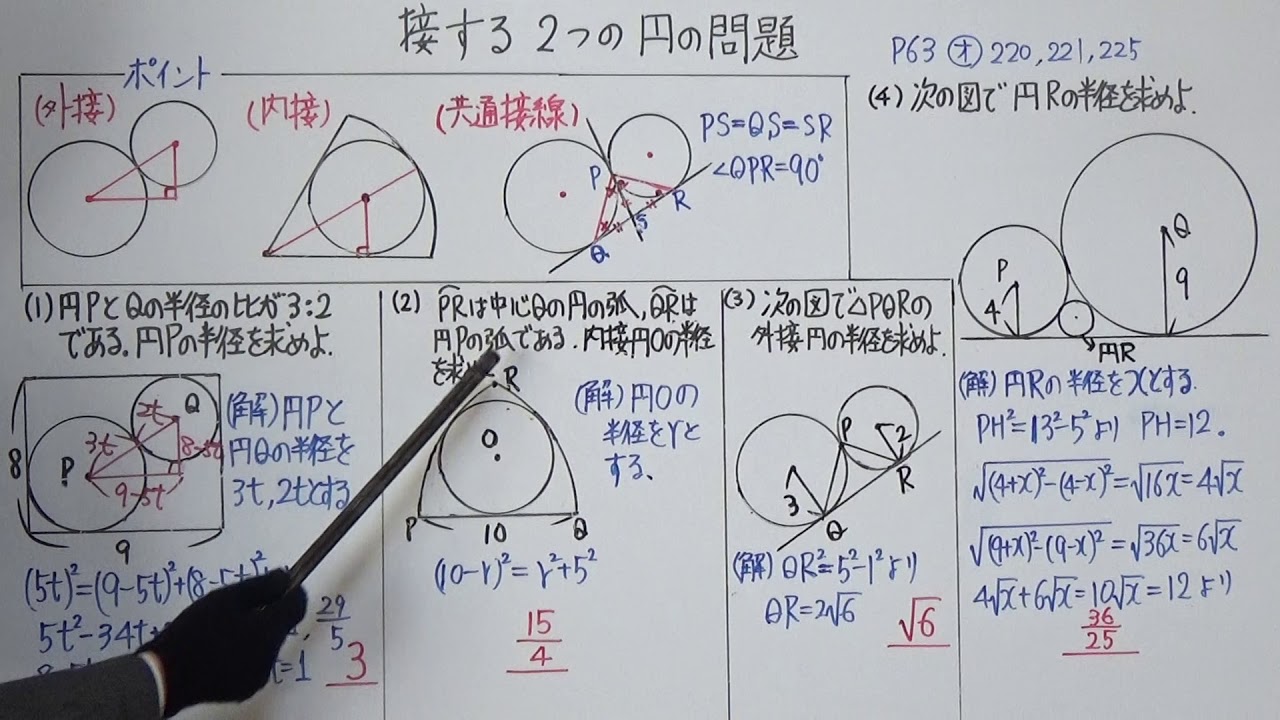 接する2つの円の問題
P63 ㋔ 220,221,225
ポイント
(外接)
(内接)
(共通接線)
PS=QS=SR
∠QPR=90°
P
S
R
Q
(1) 円PとQの半径の比が3:2
である。円Pの半径を求めよ.
8
9
P
Q
3t
2t
8-5t
9-5t
(解) 円Pと
円Qの半径を
3t, 2tとする
(5t)²=(9-5t)²+(8-5t)²
5t²-34t+
29/5
t=1
3
(2) P͡Rは中心Qの円の弧, Q͡Rは
円Pの弧である. 内接円Oの半径
を求め
R
O
P
10
Q
(解) 円Oの
半径をrと
する、
(10-r)²=r²+5²
15/4
(3) 次の図で△PQRの
外接円の半径を求めよ.
P
2
R
3
Q
(解) QR²=5²-1²より
QR=2√6
√6
(4) 次の図で円Rの半径を求めよ.
P
4
Q
9
円R
(解) 円Rの半径をxとする.
PH²=13²-5²より PH=12.
√(4+x)²-(4-x)²=√16x=4√x
√(9+x)²-(9-x)²=√36x=6√x
4√x+6√x=10√x=12より
36/25